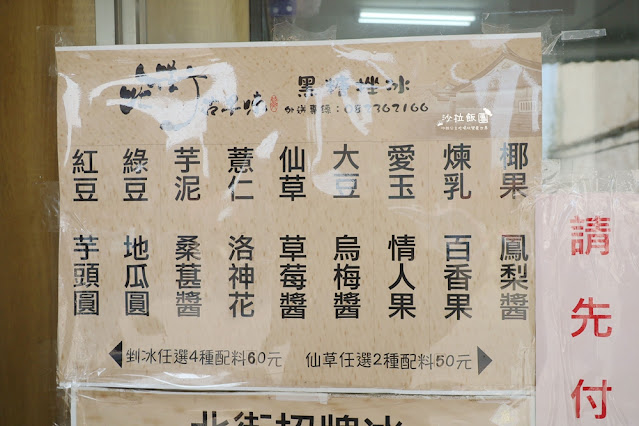 黑糖挫冰
外送專線：082362166
沙拉飯團
椰果
煉乳
愛玉
大豆
仙草
薏仁
芋泥
綠豆
紅豆
鳳梨醬
百香果
情人果
烏梅醬
草莓醬
洛神花
桑葚醬
地瓜圓
芋頭圓
剉冰任選4種配料60元
仙草任選2種配料50元
請先付
北街招牌冰